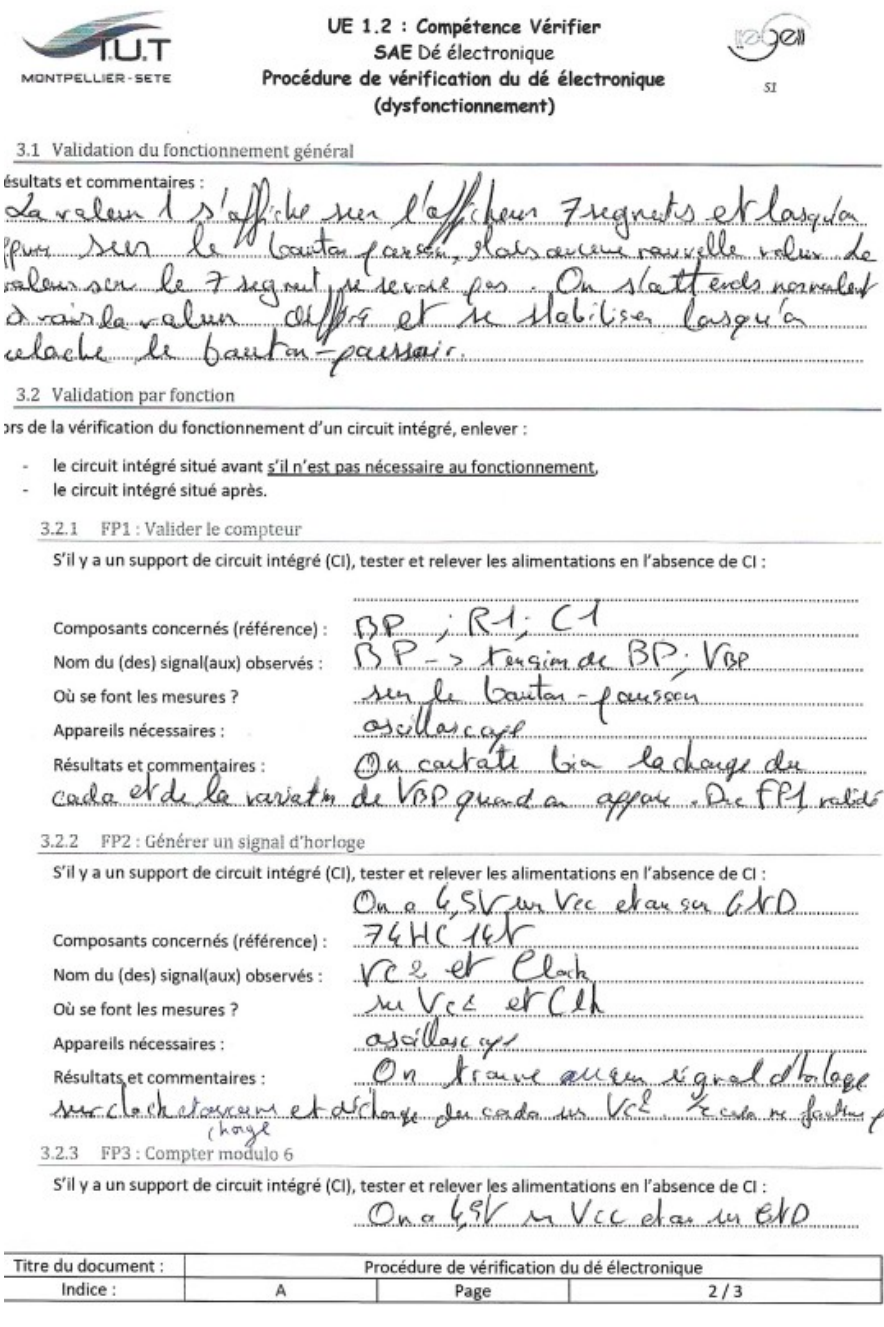 I.U.T
MONTPELLIER-SETE
UE 1.2 : Compétence Vérifier
SAE Dé électronique
Procédure de vérification du dé électronique
(dysfonctionnement)
S1
3.1 Validation du fonctionnement général
ésultats et commentaires :
La valeur 1 s'affiche sur l'afficheur 7 segments et lorsqu'on
sur le bouton poussoir, Mais aucune nouvelle valeur de
valeur sur le 7 segment, se pas. On s'attends normalement
à voir la valeur et se stabiliser lorsqu'on
relache le bouton-poussoir.
3.2 Validation par fonction
ors de la vérification du fonctionnement d'un circuit intégré, enlever :
- le circuit intégré situé avant s'il n'est pas nécessaire au fonctionnement,
- le circuit intégré situé après.
3.2.1 FP1 : Valider le compteur
S'il y a un support de circuit intégré (CI), tester et relever les alimentations en l'absence de CI :
Composants concernés (référence) : BP ; R1; C1
Nom du (des) signal(aux) observés : BP -> tension de BP; VBP
Où se font les mesures ? sur le bouton-poussoir
Appareils nécessaires : oscilloscope
Résultats et commentaires : On constate bien la charge du
condo et de la variation de VBP quand on appuie. Donc FP1 validé
3.2.2 FP2 : Générer un signal d'horloge
S'il y a un support de circuit intégré (CI), tester et relever les alimentations en l'absence de CI :
On a 4,5V sur Vcc et sur GND
Composants concernés (référence) : 74HC14N
Nom du (des) signal(aux) observés : VC2 et Clock
Où se font les mesures ? sur Vc2 et Clk
Appareils nécessaires : oscilloscope
Résultats et commentaires : On trouve aucun signal d'horloge
sur clock et aucune charge et décharge du condo sur VC2. Le condo ne
3.2.3 FP3 : Compter modulo 6
S'il y a un support de circuit intégré (CI), tester et relever les alimentations en l'absence de CI :
On a 4,9V sur Vcc et sur GND
Titre du document : Procédure de vérification du dé électronique
Indice : A Page 2 / 3